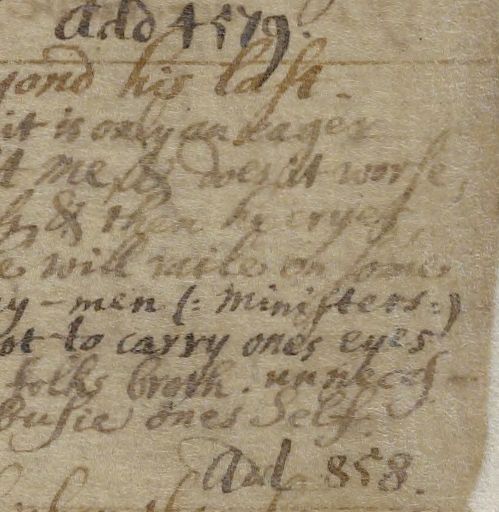 Add 4579.
yond his last.
it is only an eager
it me, & does it worse,
& then he cryes,
will raile on some
y-men (: Ministers:)
ot to carry ones eyes
folks broth. unneces-
busie ones Self.
Ad 858.